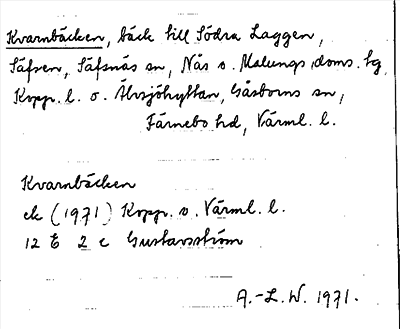 Kvarnbäcken, bäck till Södra Laggen,
Säfsen, Säfsnäs sn, Nås o. Malungs doms. hg
Kopp. l. o. Älvsjöhyttan, Gåsborns sn,
Färnebo hd, Värml. l.
Kvarnbäcken
ek (1971) Kopp. o. Värml. l.
12 E 2 c Gustavsström
A.-L. W. 1971.